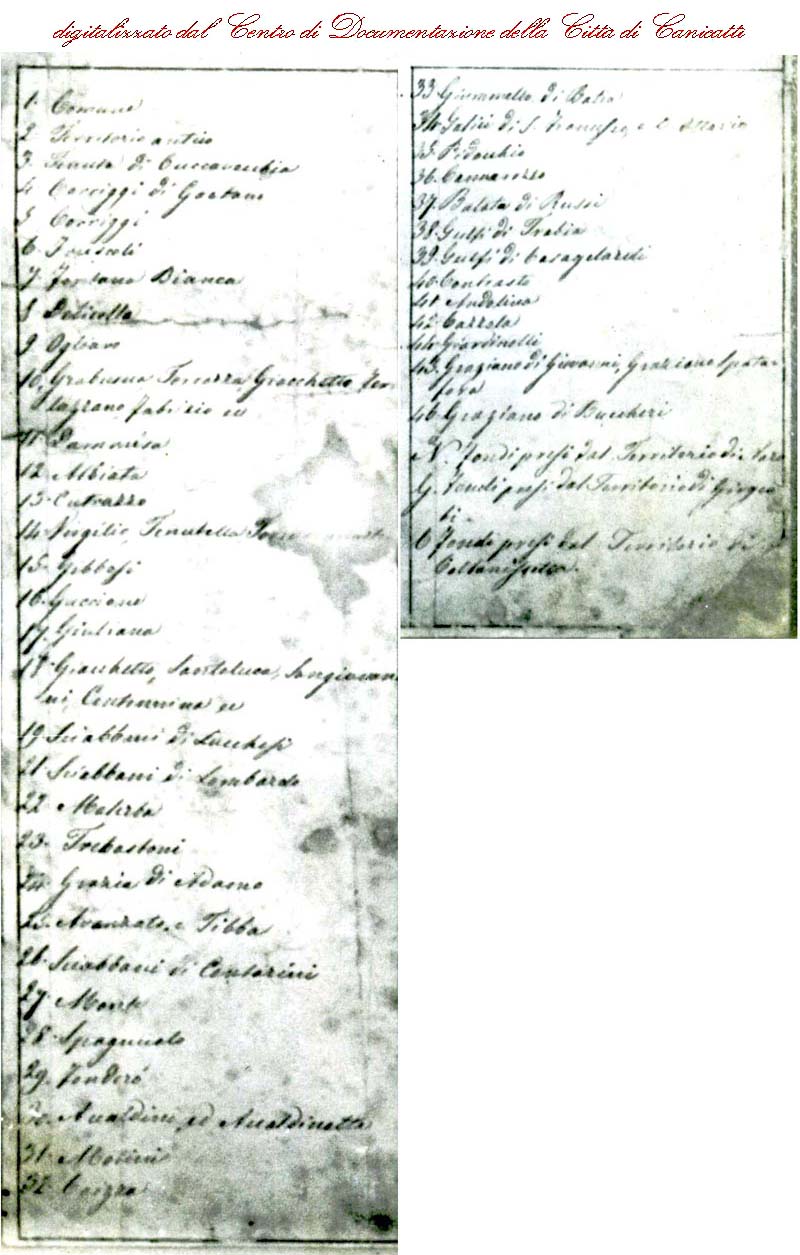 digitalizzato dal Centro di Documentazione della Città di Canicattì
1. Comune
2 Territorio antico
3. Tenuta di Cuccavecchia
4 Carriggi di Gaetano
5 Carriggi
6
7 Fontana Bianca
8 Delicella
9 Ogliaro
10. Grabusua Torrazza Giacchetto
Fabrizio ec
11 Dammisa
12 Albiata
13 Cutrazzo
14 Virgilio, Tenutella
15. Gibbesi
16 Guccione
17 Giuliana
18 Giacchetto, Santaluca, Sangiovan
ni, Centunnina ec
19 Sciabbani di Lucchesi
21 Sciabbani di Lombardo
22 Malerba
23. Trebastoni
24 Grazia di Adamo
25. Avanzato e Tibba
26 Sciabbani di Contarini
27 Monte
28 Spagnuolo
29. Fonderò
30. Aualdini ed Aualdinetta
31 Molini
32
33 Giummello di Balia
34 di S. Francesco, e
35 Pidocchio
36. Cannarozzo
37 Balata di Russi
38. Gulfi di Trabia
39. Gulfi di Casagelardi
40 Contrasto
41 Andolina
42 Cazzola
44 Giardinelli
43. Graziano di Giovanni, Graziano Spata-
fora
46 Graziano di Buccheri
N. Fondi presi dal Territorio di Naro
G. Fondi presi dal Territorio di Girgen
ti
C Fondi presi dal Territorio di
Caltanissetta.